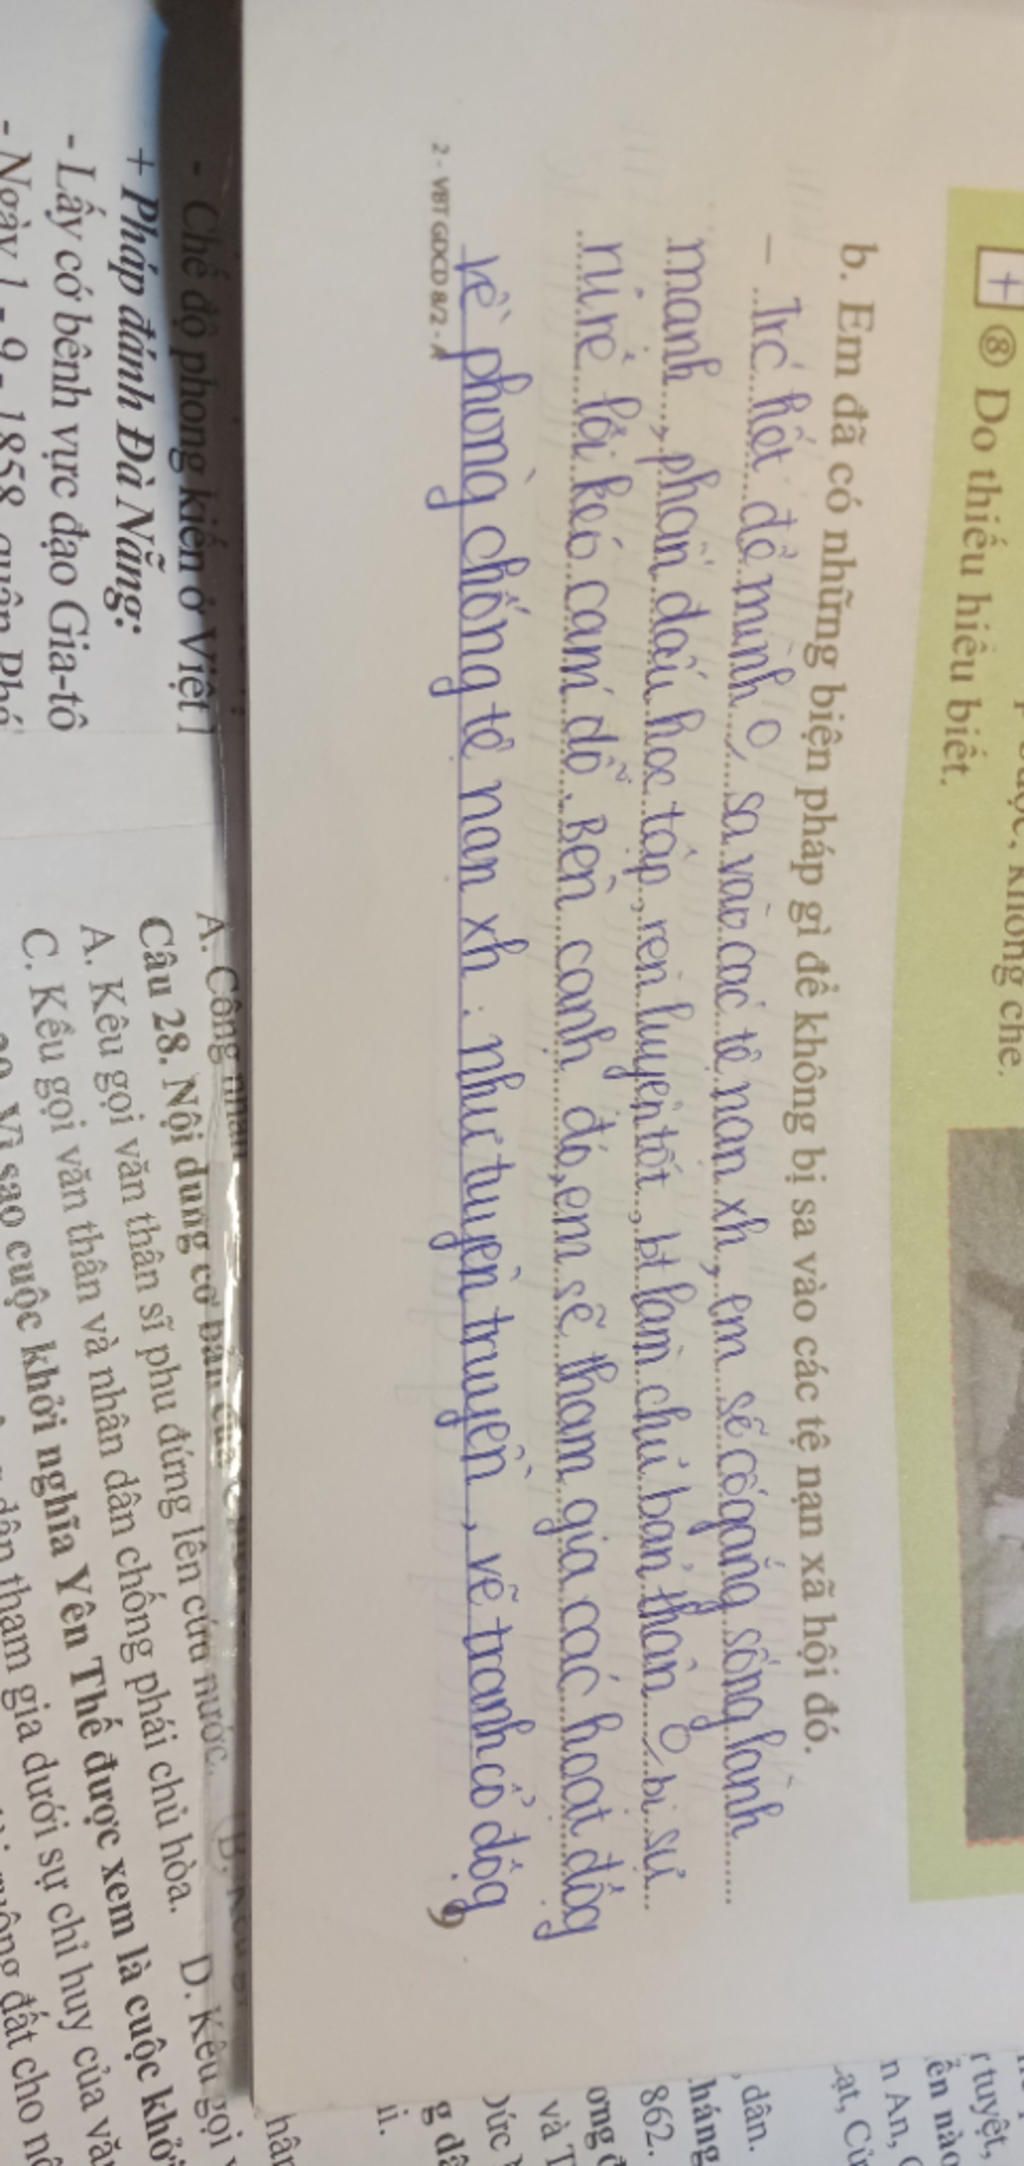 + ⑧ Do thiếu hiểu biết.
b. Em đã có những biện pháp gì để không bị sa vào các tệ nạn xã hội đó.
- Trc hết để mình 0 sa vào các tệ nạn xh, em sẽ cố gắng sống lành
mạnh, phấn đấu học tập, rèn luyện tốt, bt làm chủ bản thân 0 bị sự
rủ rê lôi kéo cám dỗ. Bên cạnh đó, em sẽ tham gia các hoạt động
về phòng chống tệ nạn xh: như tuyên truyền, vẽ tranh cổ động
2 - VBT GDCD 8/2 - A
9
- Chế độ phong kiến ở Việt
+ Pháp đánh Đà Nẵng:
- Lấy cớ bênh vực đạo Gia-tô
- Ngày 1 - 9 - 1858, quân Phá
A. Công nhân
Câu 28. Nội dung cơ bản của
A. Kêu gọi văn thân sĩ phu đứng lên cứu nước.
C. Kêu gọi văn thân và nhân dân chống phái chủ hòa.
D. Kêu gọi
Vì sao cuộc khởi nghĩa Yên Thế được xem là cuộc khở
dân tham gia dưới sự chỉ huy của vă
đất cho nô
tuyệt,
n An,
dân.
háng
862.
và T
g dâ